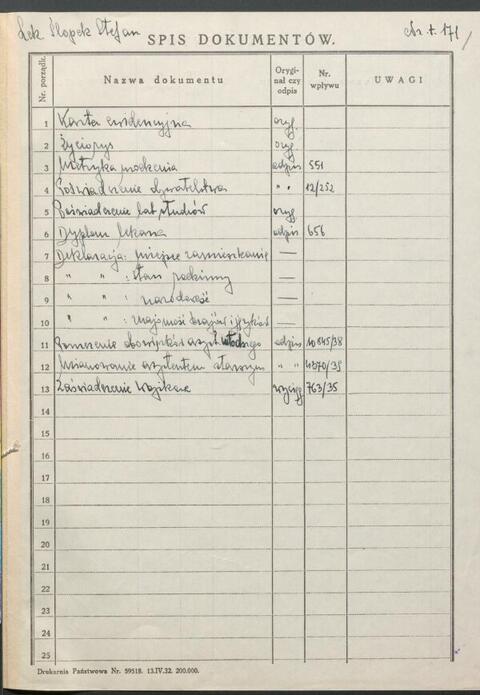 Lek Ślopek Stefan
Nr. t. 171/
SPIS DOKUMENTÓW.
Nr. porządk. Nazwa dokumentu Orygi- nał czy odpis Nr. wpływu UWAGI
1 Karta ewidencyjna oryg.
2 Życiopis oryg.
3 Metryka urodzenia odpis 551
4 Poświadczenie obywatelstwa " " 12/252
5 Poświadczenie lat studiów oryg.
6 Dyplom lekarza odpis 656
7 Deklaracja: miejsce zamieszkania —
8 " " : stan rodzinny —
9 " " : narodowość —
10 " " : znajomość krajów i języków —
11 obowiązków asyst. młodszego odpis 10845/38
12 Mianowanie asystentem starszym " " 4370/39
13 Zaświadczenie wojskowe wyciąg 763/35
14
15
16
17
18
19
20
21
22
23
24
25
Drukarnia Państwowa Nr. 59518. 13.IV.32. 200.000.